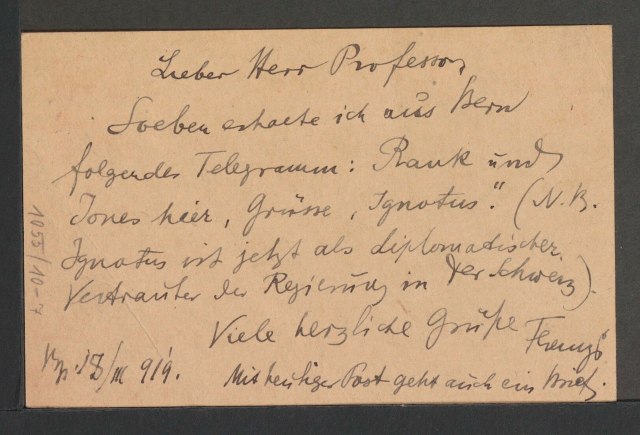 Lieber Herr Professor,
Soeben erhalte ich aus Bern
folgendes Telegramm: Rank und
Jones hier, Grüsse, Ignotus." (N.B.
Ignotus ist jetzt als diplomatischer
Vertrauter der Regierung in der Schweiz).
Viele herzliche Grüße Ferenczi
Bp. 18/III 919.
Mit heutiger Post geht auch ein Brief.
1055/10-7